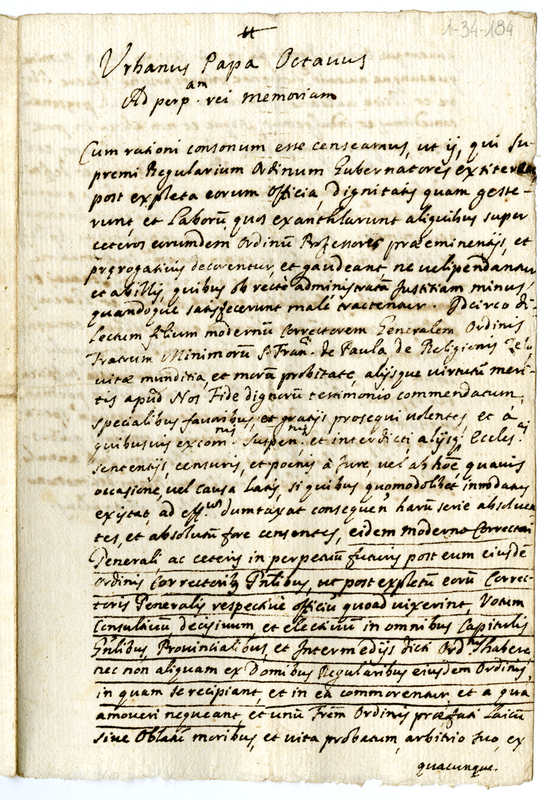 1-34-184
Urbanus Papa Octavus
Ad perp.am rei memoriam
Cum rationi consonum esse censeamus, ut ij, qui su-
premi Regularium Ordinum Gubernatores extitere
post expleta eorum officia, dignitatis quam gesse-
runt, et Laborũ quos exanthlarunt aliquibus super
ceteros eorumdem Ordinũ Professores præeminentijs, et
prærogativis decorentur, et gaudeant, ne vilipendantur
et ab illis, quibus ob rectè administratam Justitiam minus
quandoque satisfecerunt malè tractentur. Idcirco di-
lectum filium modernũ Correctorem Generalem Ordinis
Fratrum Minimorũ S. Fran. de Paula de Religionis Zelo
vitæ munditia, et morũ probitate, alijsque virtutũ meri-
tis apud Nos fide dignorũ testimonio commendatum,
specialibus favoribus et gratijs prosequi volentes et à
quibusvis excom.nis suspen.nis et interdicti, alijsq; Eccles.cis
sentẽntijs, censuris, et pœnis à Jure, vel ab hoẽ quavis
occasione, vel causa latis, si quibus quomodolibet innodatus
existat, ad eff.us dumtaxat consequen harũ serie absolven
tes, et absolutũ fore censentes, eidem moderno Correctori
Generali ac ceteris in perpetuũ futuris post eum eiusdẽ
Ordinis Correctoribus Gñlibus, ut post expletũ eorũ Correc-
toris Generalis respectivè officiũ quoad vixerint, Votum
Consultivũ decisivum et electivũ in omnibus Capitulis
Gñlibus Provincialibus, et Intermedijs dicti Ord.nis habere
nec non aliquam ex Domibus Regularibus eiusdem Ordinis,
in quam se recipiant, et in ea commorentur et a qua
amoveri nequeant, et unũ Frem Ordinis præfati Laicũ
sive Oblatũ moribus, et vita probatum, arbitrio suo, ex
quacunque.